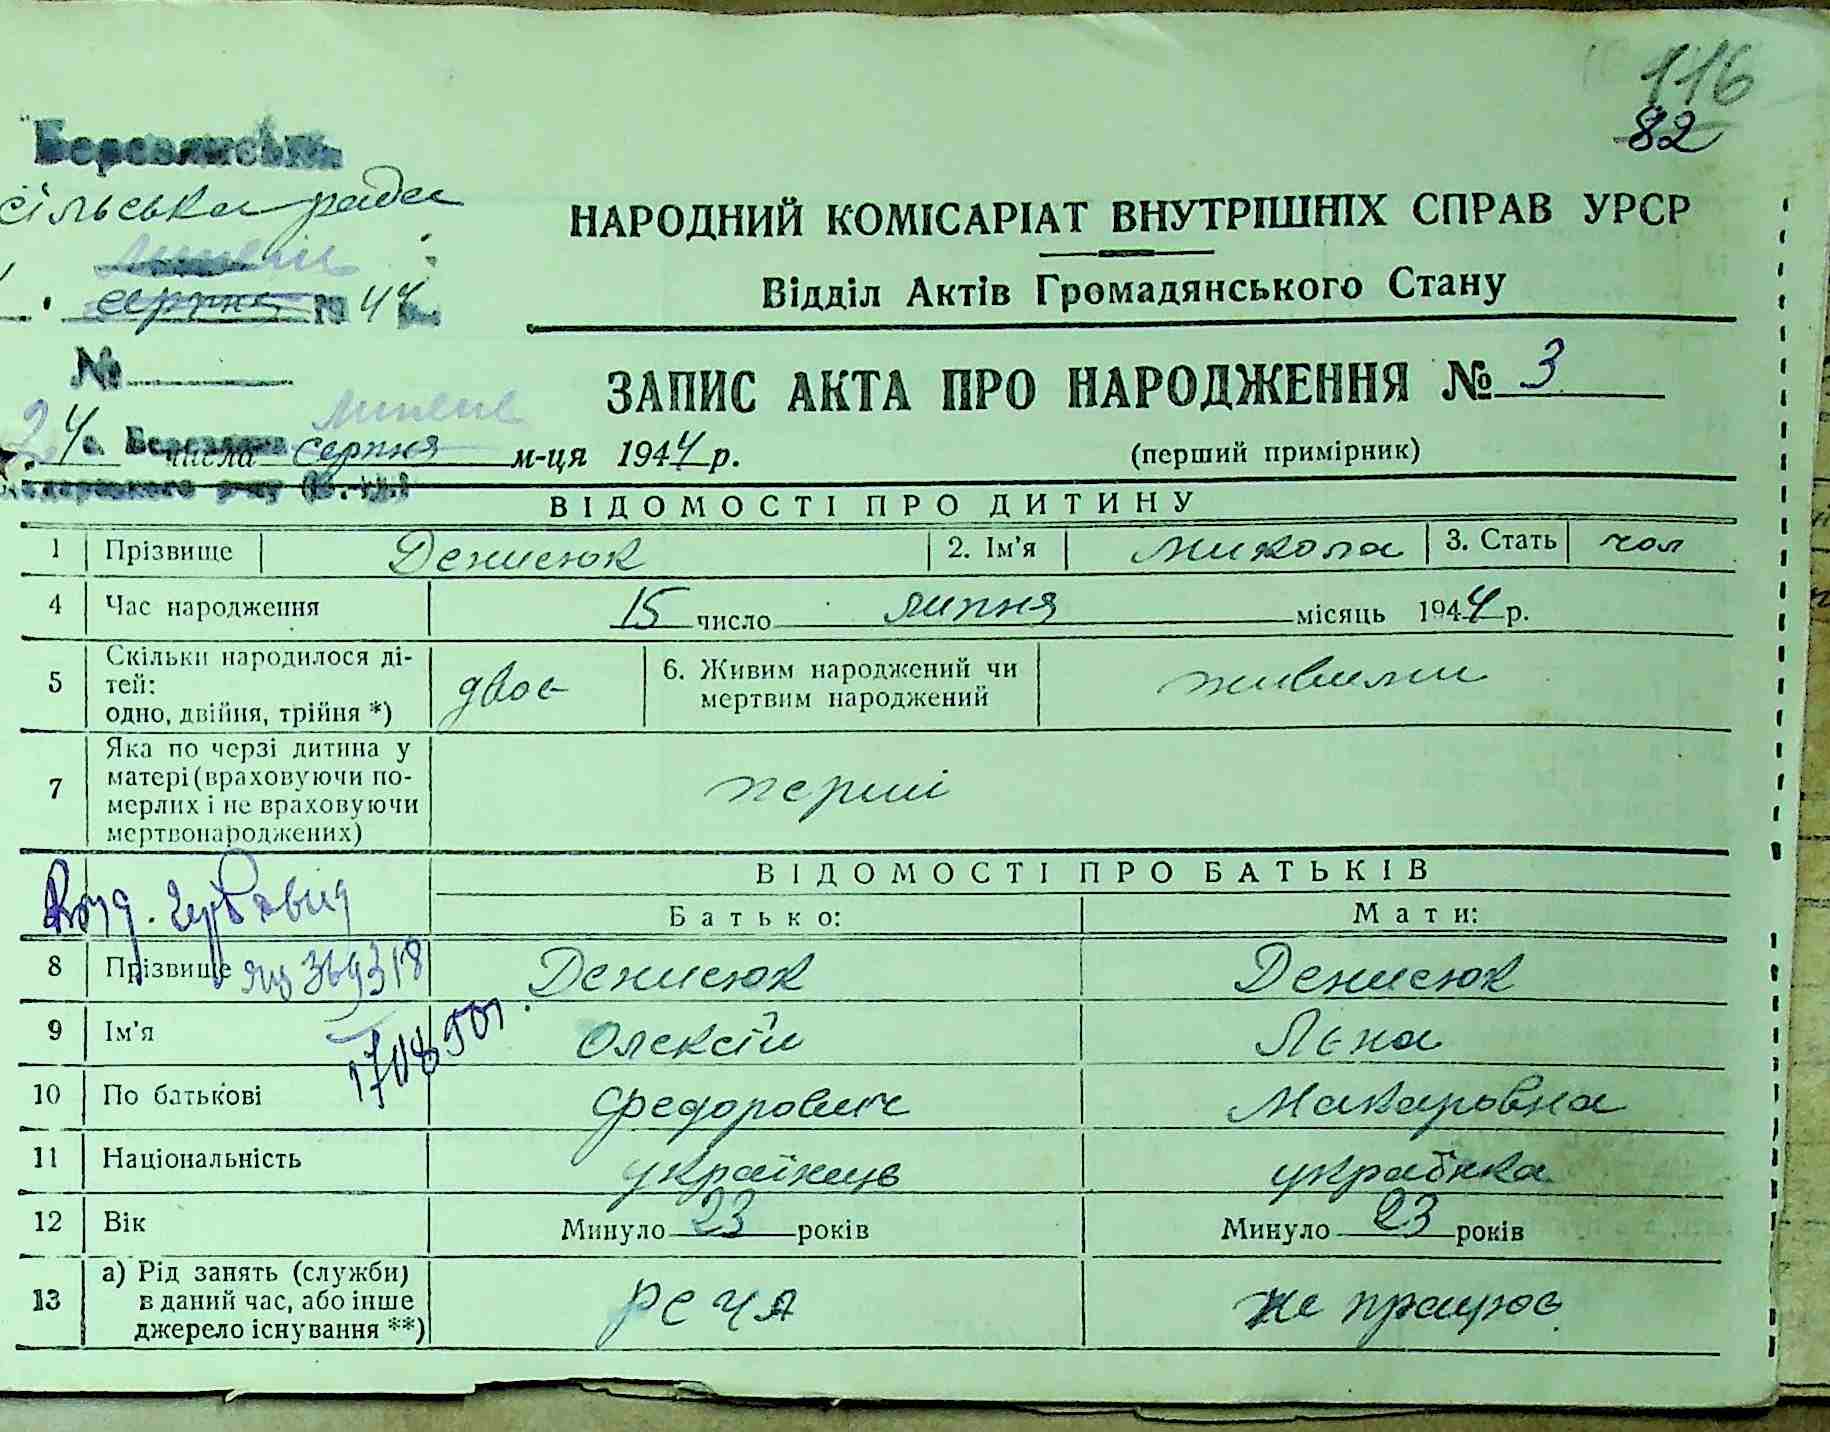 116
82
сільська рада
липня
серпня 1944
№
24 липня
числа серпня м-ця 1944 р.
НАРОДНИЙ КОМІСАРІАТ ВНУТРІШНІХ СПРАВ УРСР
Відділ Актів Громадянського Стану
ЗАПИС АКТА ПРО НАРОДЖЕННЯ № 3
(перший примірник)
ВІДОМОСТІ ПРО ДИТИНУ
1 Прізвище Денисюк 2. Ім'я Микола 3. Стать чол
4 Час народження 15 число липня місяць 1944 р.
5 Скільки народилося ді-
тей:
одно, двійня, трійня *) двоє
6. Живим народжений чи
мертвим народжений живими
7 Яка по черзі дитина у
матері (враховуючи по-
мерлих і не враховуючи
мертвонароджених) перші
ВІДОМОСТІ ПРО БАТЬКІВ
Батько: Мати:
8 Прізвище Денисюк Денисюк
369318
9 Ім'я Олексій Лєна
10 По батькові Федорович Макаровна
11 Національність українець українка
12 Вік Минуло 23 років Минуло 23 років
13 а) Рід занять (служби)
в даний час, або інше
джерело існування **) РСЧА не працює